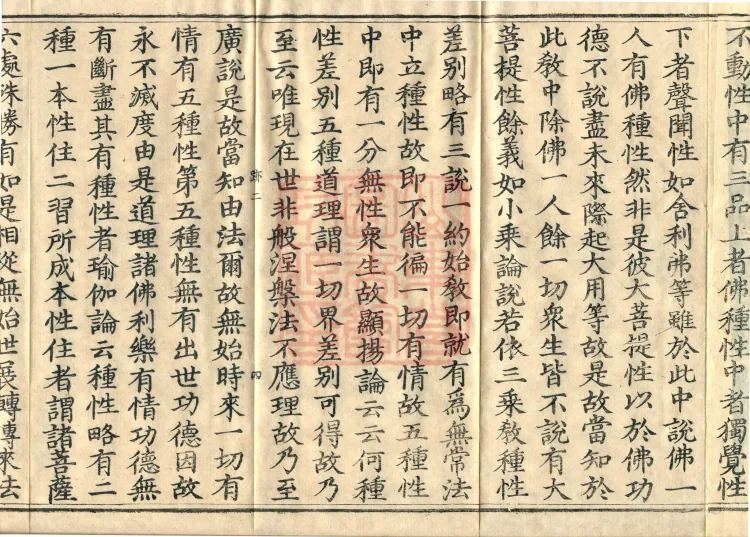 不動性中有三品上者佛種性中者獨覺性
下者聲聞性如舍利弗等雖於此中說佛一
人有佛種性然非是彼大菩提性以於佛功
德不說盡未來際起大用等故是故當知於
此教中除佛一人餘一切衆生皆不說有大
菩提性餘義如小乘論說若依三乘教種性
差別略有三說一約始教即就有爲無常法
中立種性故即不能徧一切有情故五種性
中即有一分無性衆生故顯揚論云云何種
性差別五種道理謂一切界差別可得故乃
至云唯現在世非般涅槃法不應理故乃至
廣說是故當知由法爾故無始時來一切有
情有五種性第五種性無有出世功德因故
永不滅度由是道理諸佛利樂有情功德無
有斷盡其有種性者瑜伽論云種性略有二
種一本性住二習所成本性住者謂諸菩薩
六處殊勝有如是相從無始世展轉傳來法